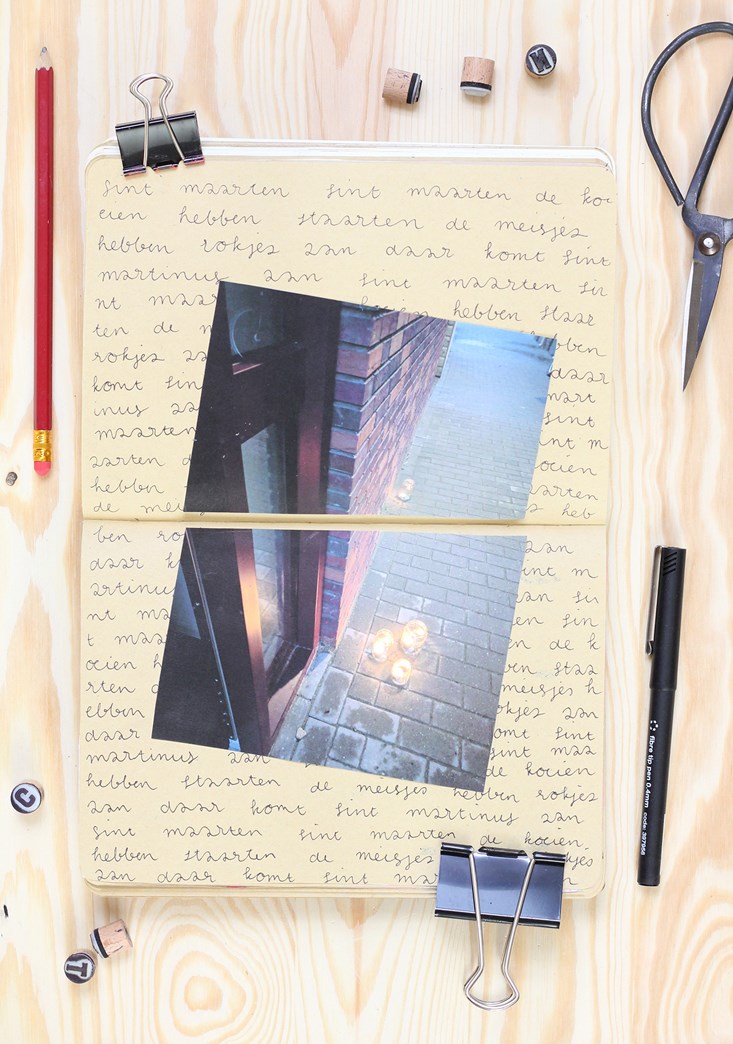 sint maarten sint maarten de ko
eien hebben staarten de meisjes
hebben rokjes aan daar komt sint
martinus aan sint maarten sin
nt maar hebben staar
ten de m bben
rokjes aa daar
komt sin mart
inus aa sint
maarten int m
aarten d ocien
hebben aarten
de mei s heb
ben ro aan
daar k int m
artinus an si
nt ma en sin
t maa n de k
ocien h en staa
rten d meisjes h
ebben okjes aan
daar omt sint
martinus aan int maa
de kocien
hebben staarten de meisjes hebben rokjes
aan daar komt sint martinus aan
sint maarten sint maarten de kocien
hebben staarten de meisjes kjes
aan daar komt sint mar n
fibre tip pen 0.4mm code: 307968
M
G
T